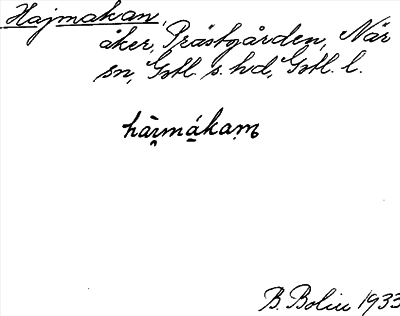 Hajmakan,
åker, Prästgården, När
sn, Gotl. s. hd, Gotl. l.
hàr̯má̱kaṃ
B. Bolin 1933